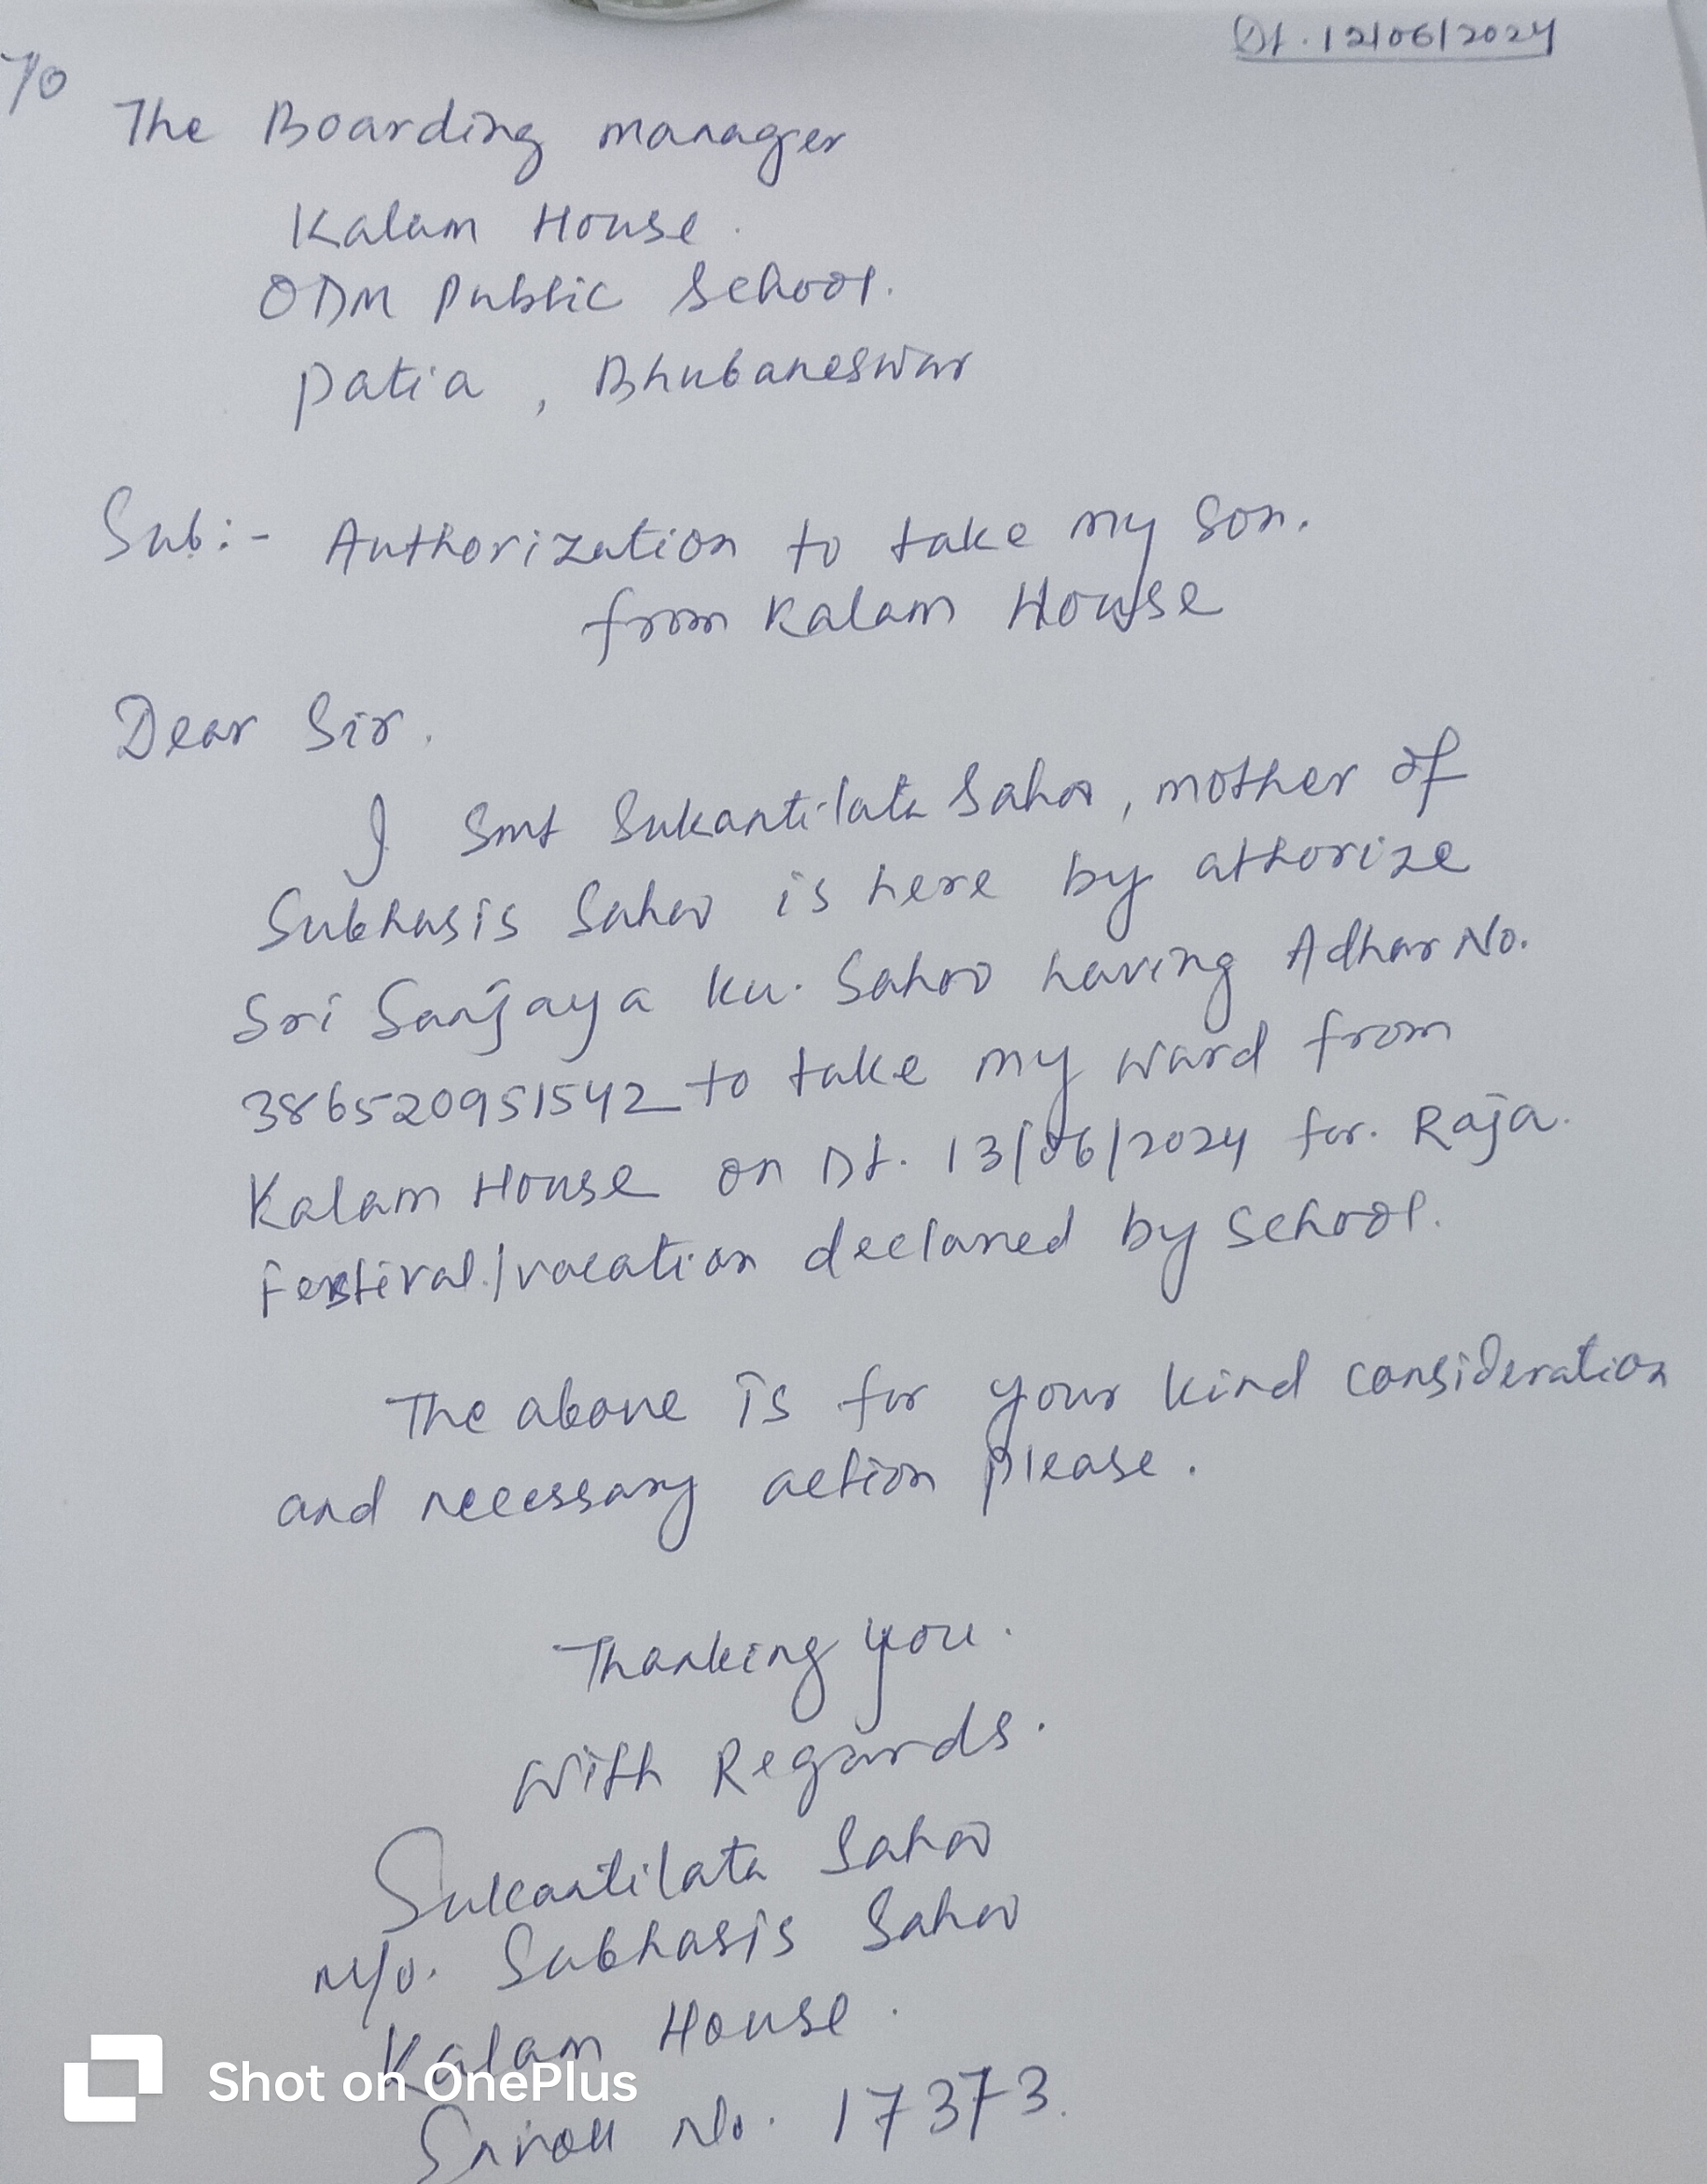 Dt. 12/06/2024
To
The Boarding manager
Kalam House.
ODM Public School.
Patia, Bhubaneswar
Sub:- Authorization to take my son.
from Kalam House
Dear Sir.
I Smt Sukantilata Sahoo, mother of
Subhasis Sahoo is here by athorize
Sri Sanjaya Ku. Sahoo having Adhar No.
386520951542 to take my ward from
Kalam House on Dt. 13/06/2024 for. Raja.
Festival/vacation declared by School.
The above is for your kind consideration
and necessary action please.
Thanking you.
With Regards.
Sukantilata Sahoo
M/o. Subhasis Sahoo
Kalam House.
Enroll No. 17373.
Shot on OnePlus